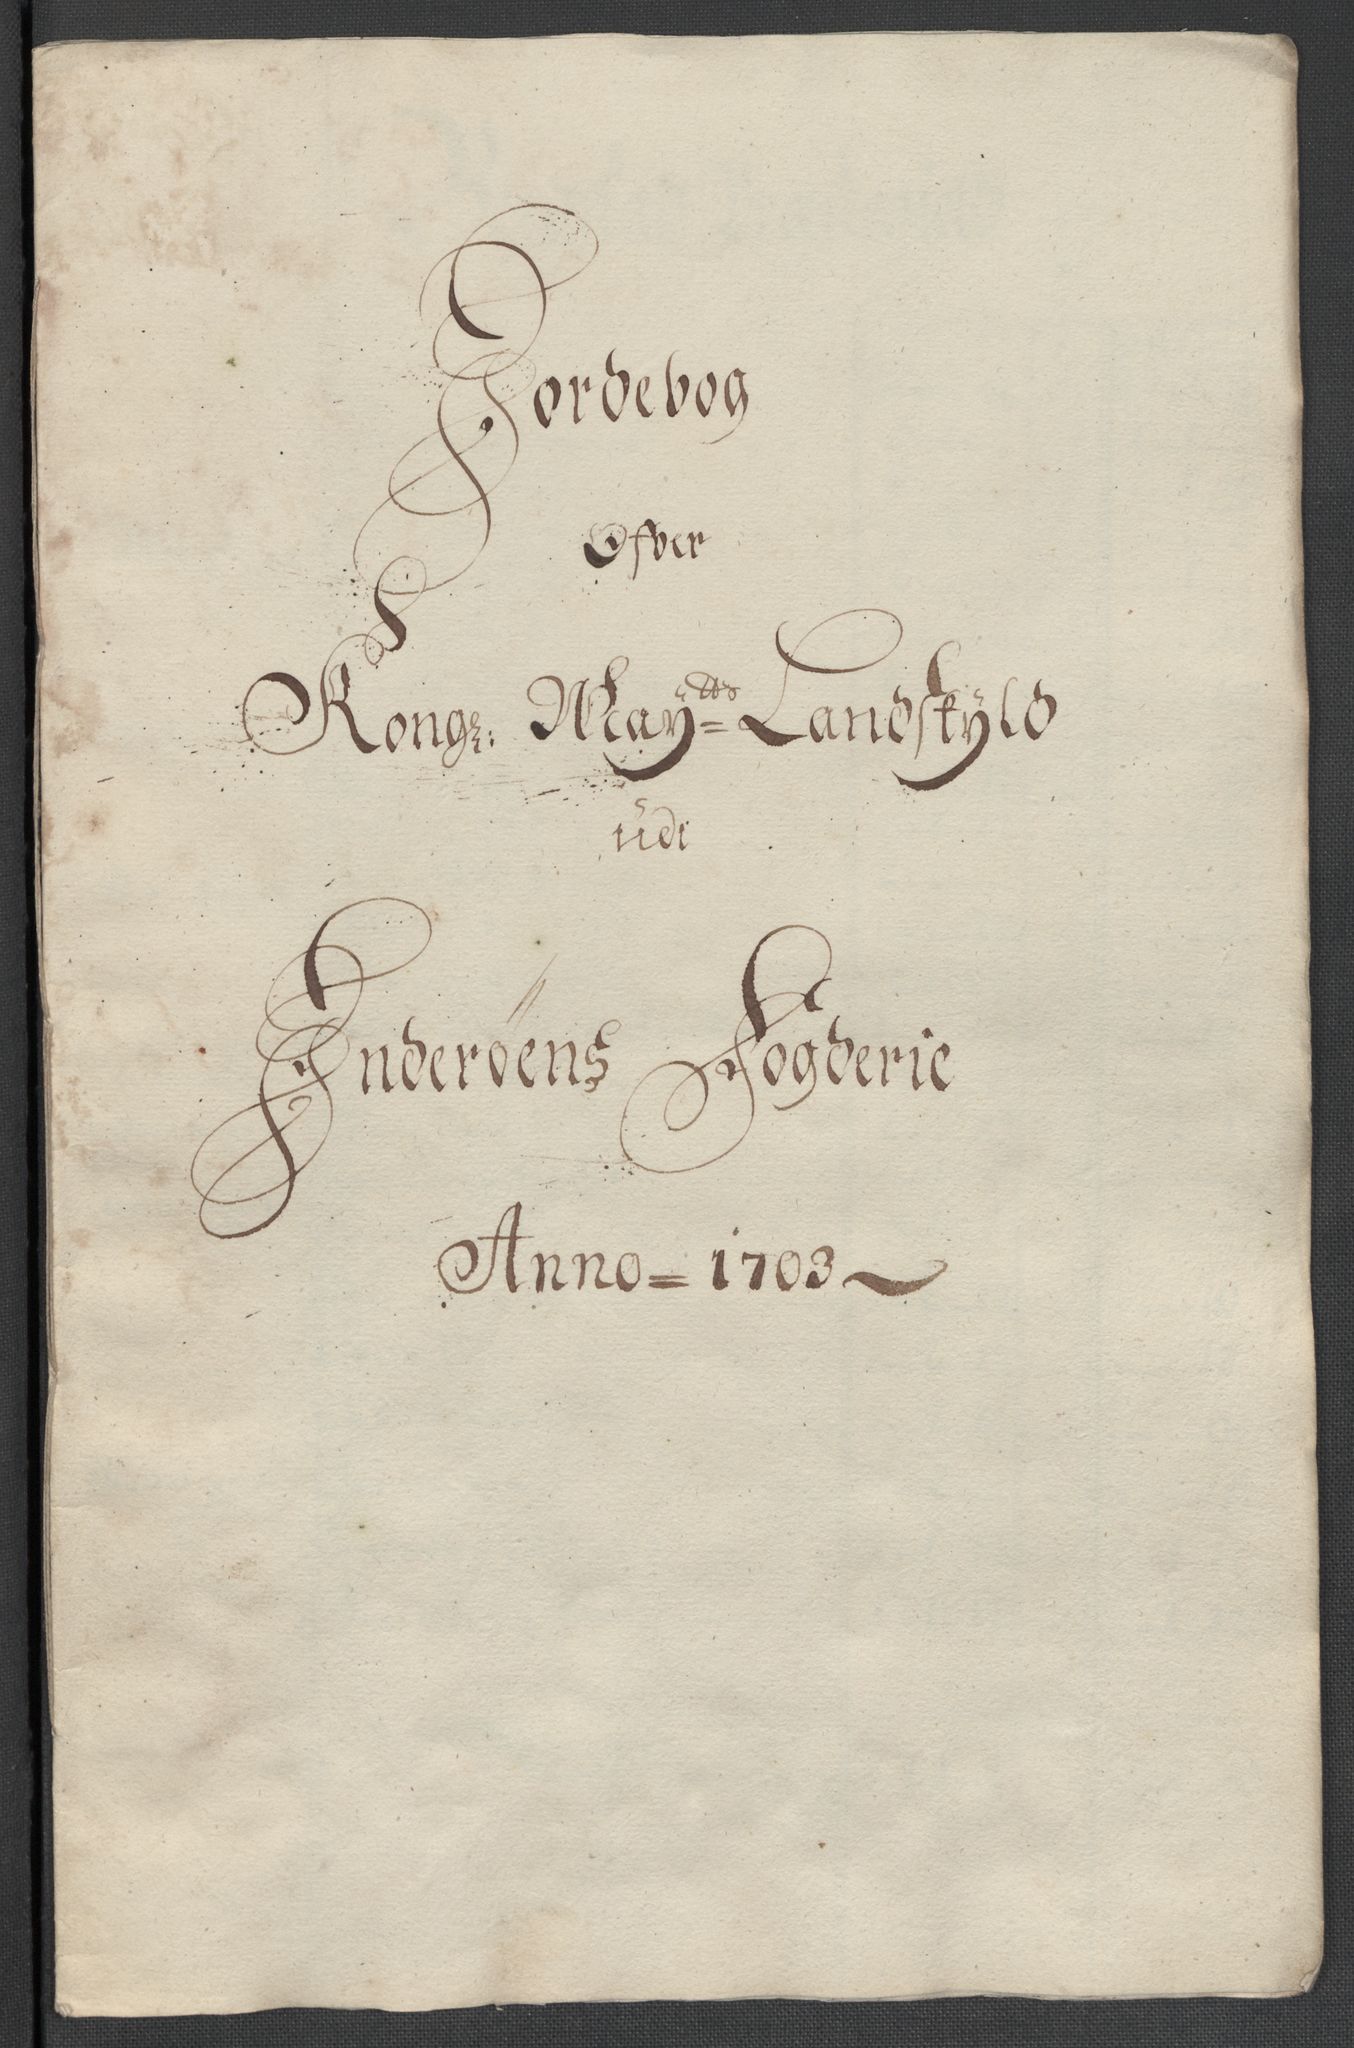 Jordebog
Ofver
Kong: Mayᵗᵗˢ= Landskÿld
udi
Inderöens Fogderie
Anno= 1703